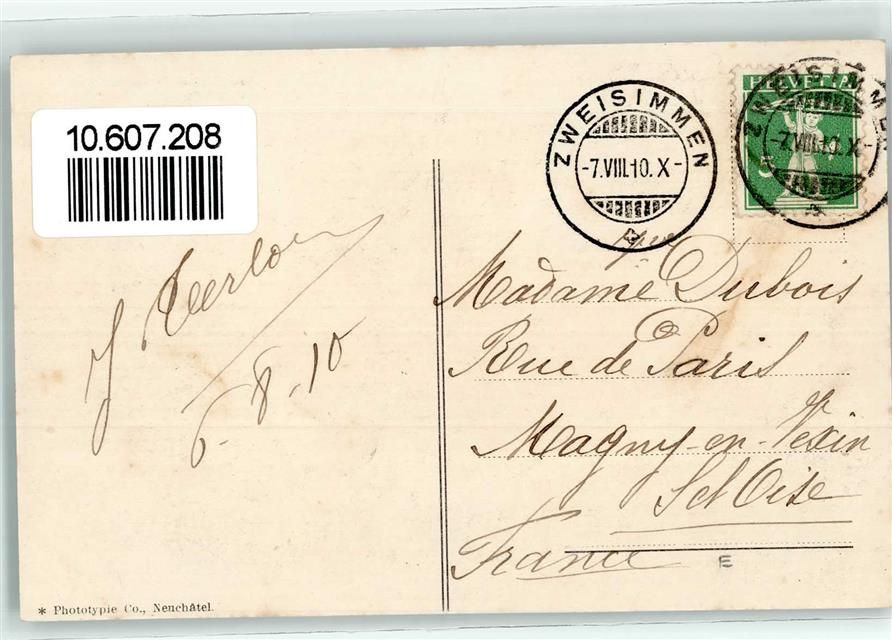 10.607.208
ZWEISIMMEN
-7.VIII.10.X-
HELVETIA
5
ZWEISIMMEN
-7.VIII.10.X-
J
6-8-10
Madame Dubois
Rue de Paris
Magny-en-Vexin
S et Oise
France
E
* Phototypie Co., Neuchâtel.